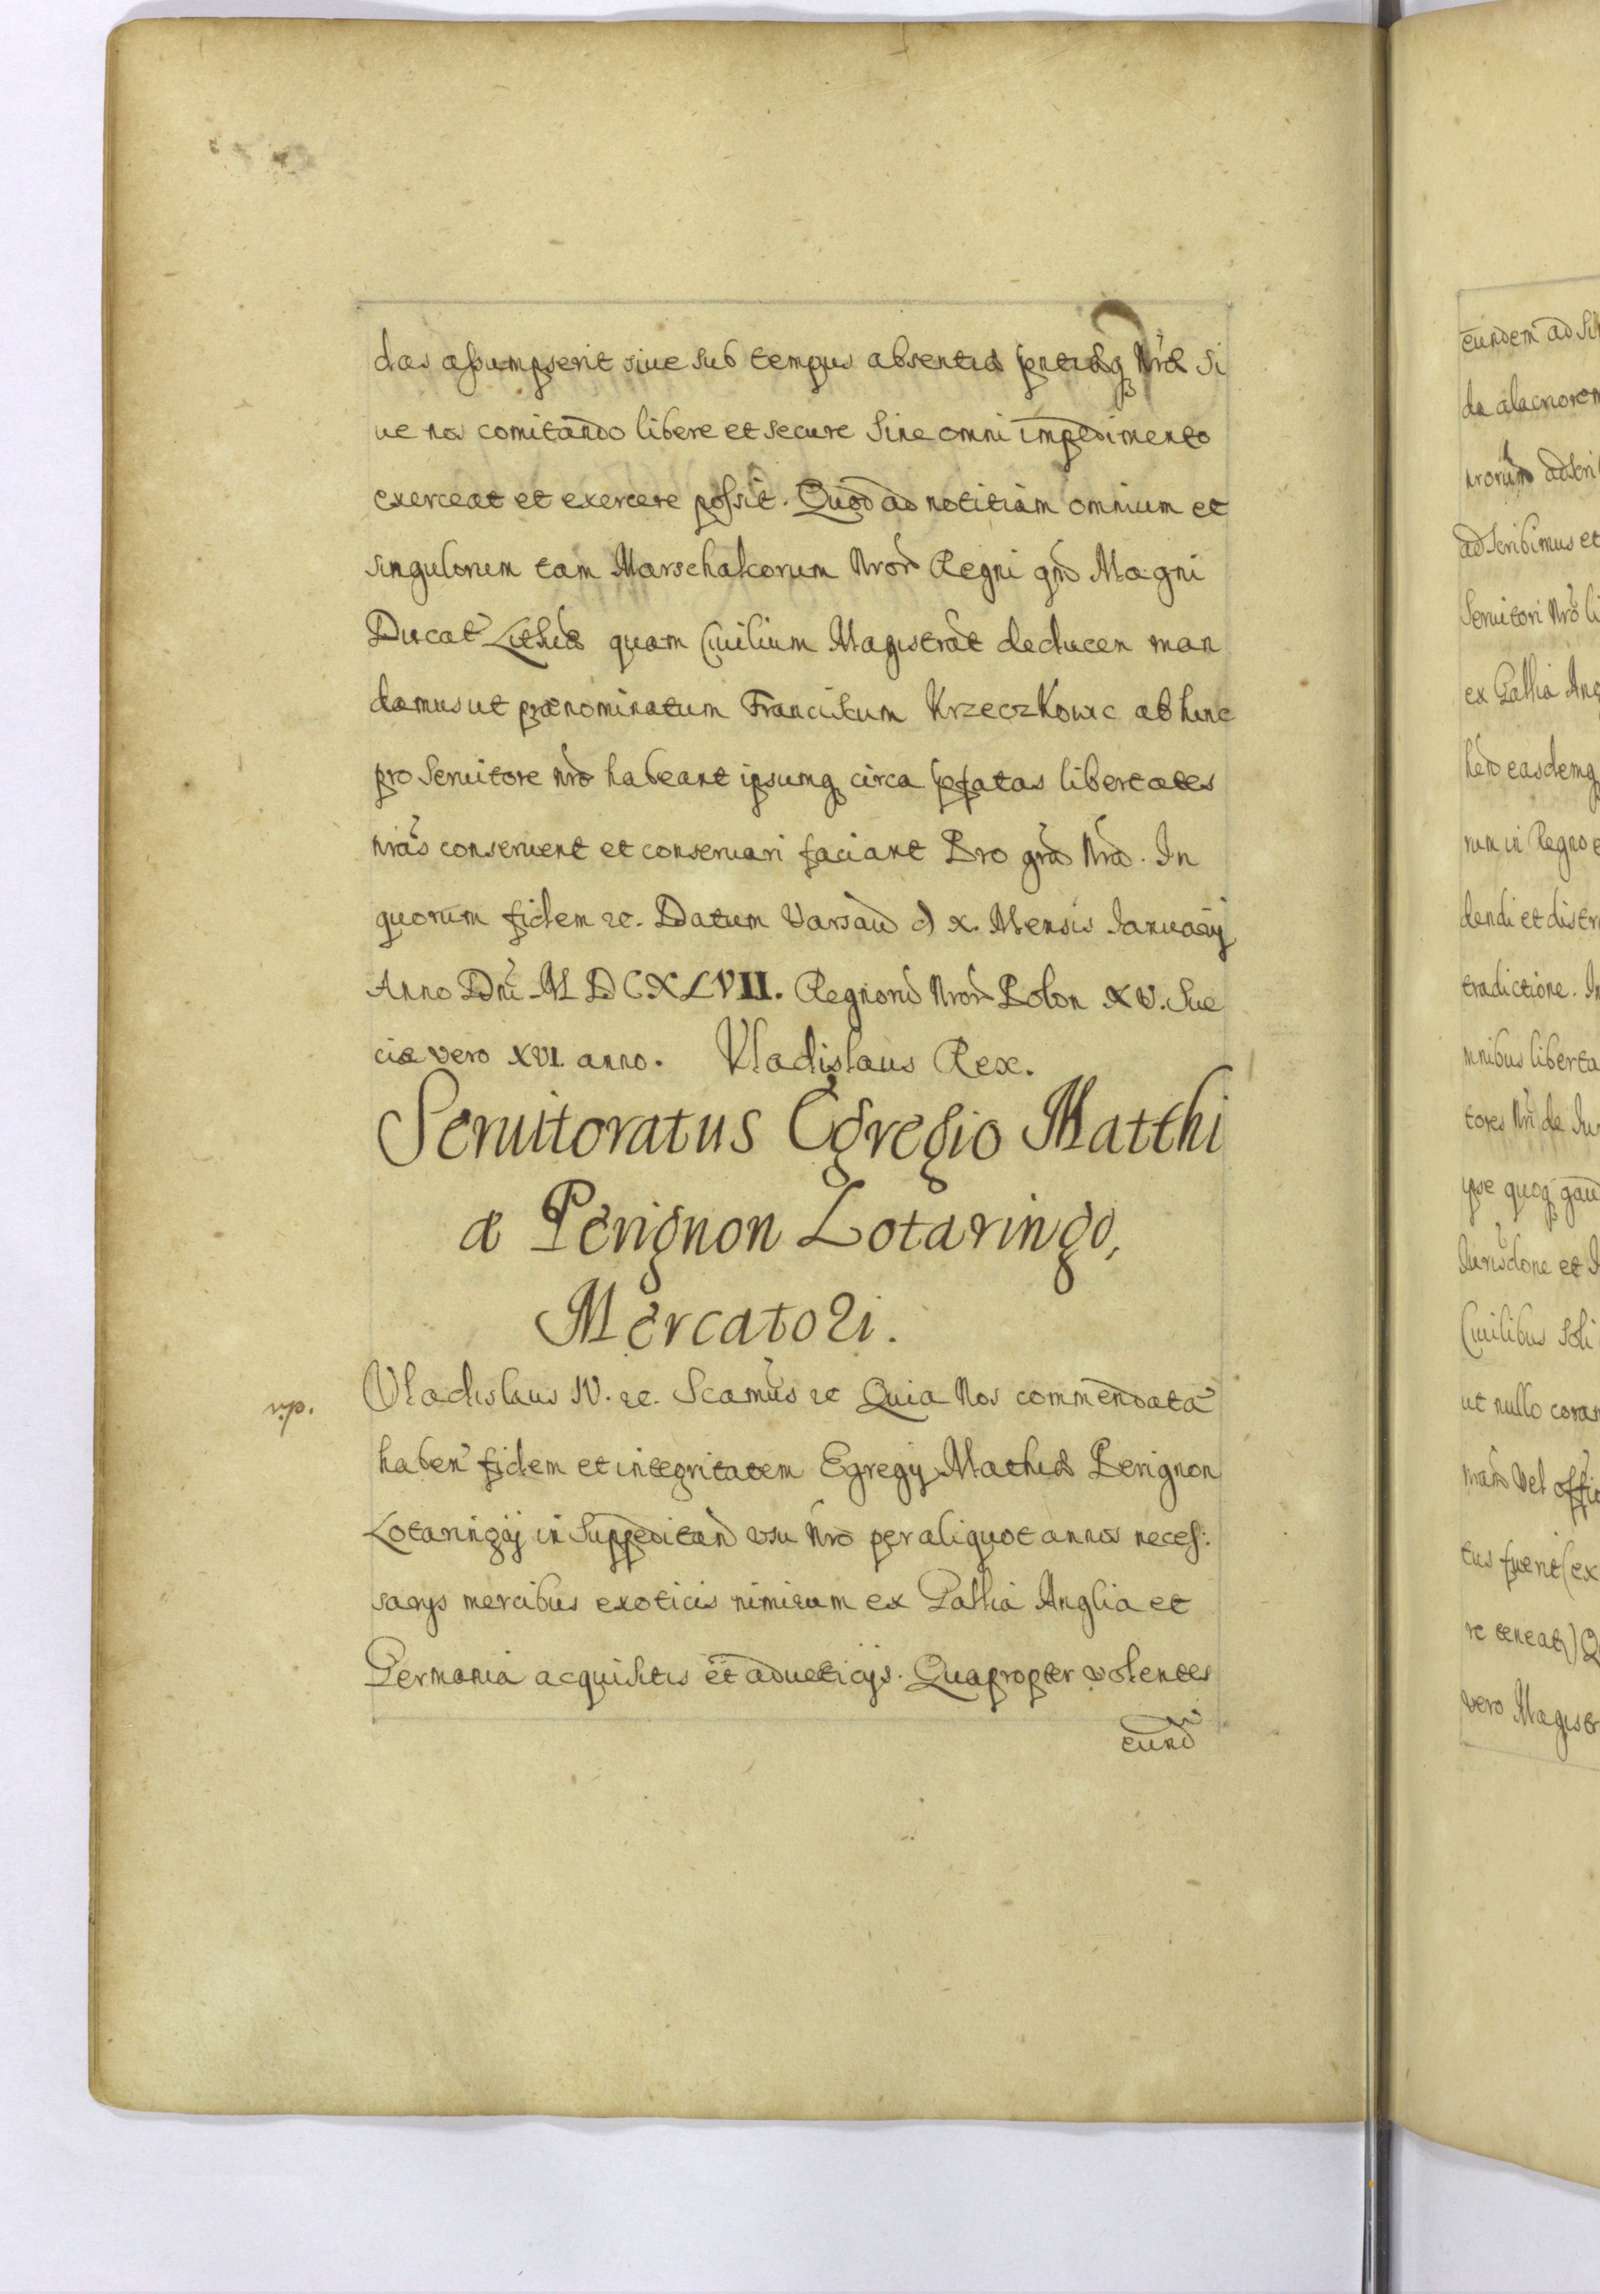 das assumpserit siue sub tempus absentiæ pntiæq Nræ si
ue nos comitando libere et secure sine omni impedimento
exerceat et exercere possit. Quod ad notitiam omnium et
singulorum tam Marschalcorum Nror Regni qm Magni
Ducat Lithuæ quam Ciuilium Magistrat deducen man
damus ut prænominatum Franciscum Krzeczkowic abhinc
pro Seruitore nro habeant ipsumq circa pfatas libertates
nras conseruent et conseruari faciant Pro gra Nra. In
quorum fidem &c. Datum Varsau d x. Mensis Januarij
Anno Dni M D C X L V I I. Regnoru Nror Polon XV. Sue
ciæ vero XVI. anno. Vladislaus Rex.
Seruitoratus Egregio Matthi
æ Perignon Lotaringo,
Mercatori.
v.p.
Vladislaus IV. &c. Scamus &c Quia Nos commendata
haben fidem et integritatem Egregij Mathiæ Perignon
Lotaringij in suppeditand usu Nro per aliquot annos neces:
sarys mercibus exoticis nimirum ex Gallia Anglia et
Germania acquisitis et aduecticijs. Quapropter volentes
eund
eundem ad
da alacriorem
nrorum adscri
adscribimus et
Seruitori Nro li
ex Gallia Ang
easdemq
rum in Regno e
dendi et distr
tradictione. In
mnibus liberta
tores Nri de Iu
ipse quoq gau
Iurisdone et
Ciuilibus Soli
ut nullo coram
vel offi
tus fuerit (ex
re teneat) Q
vero Magistr